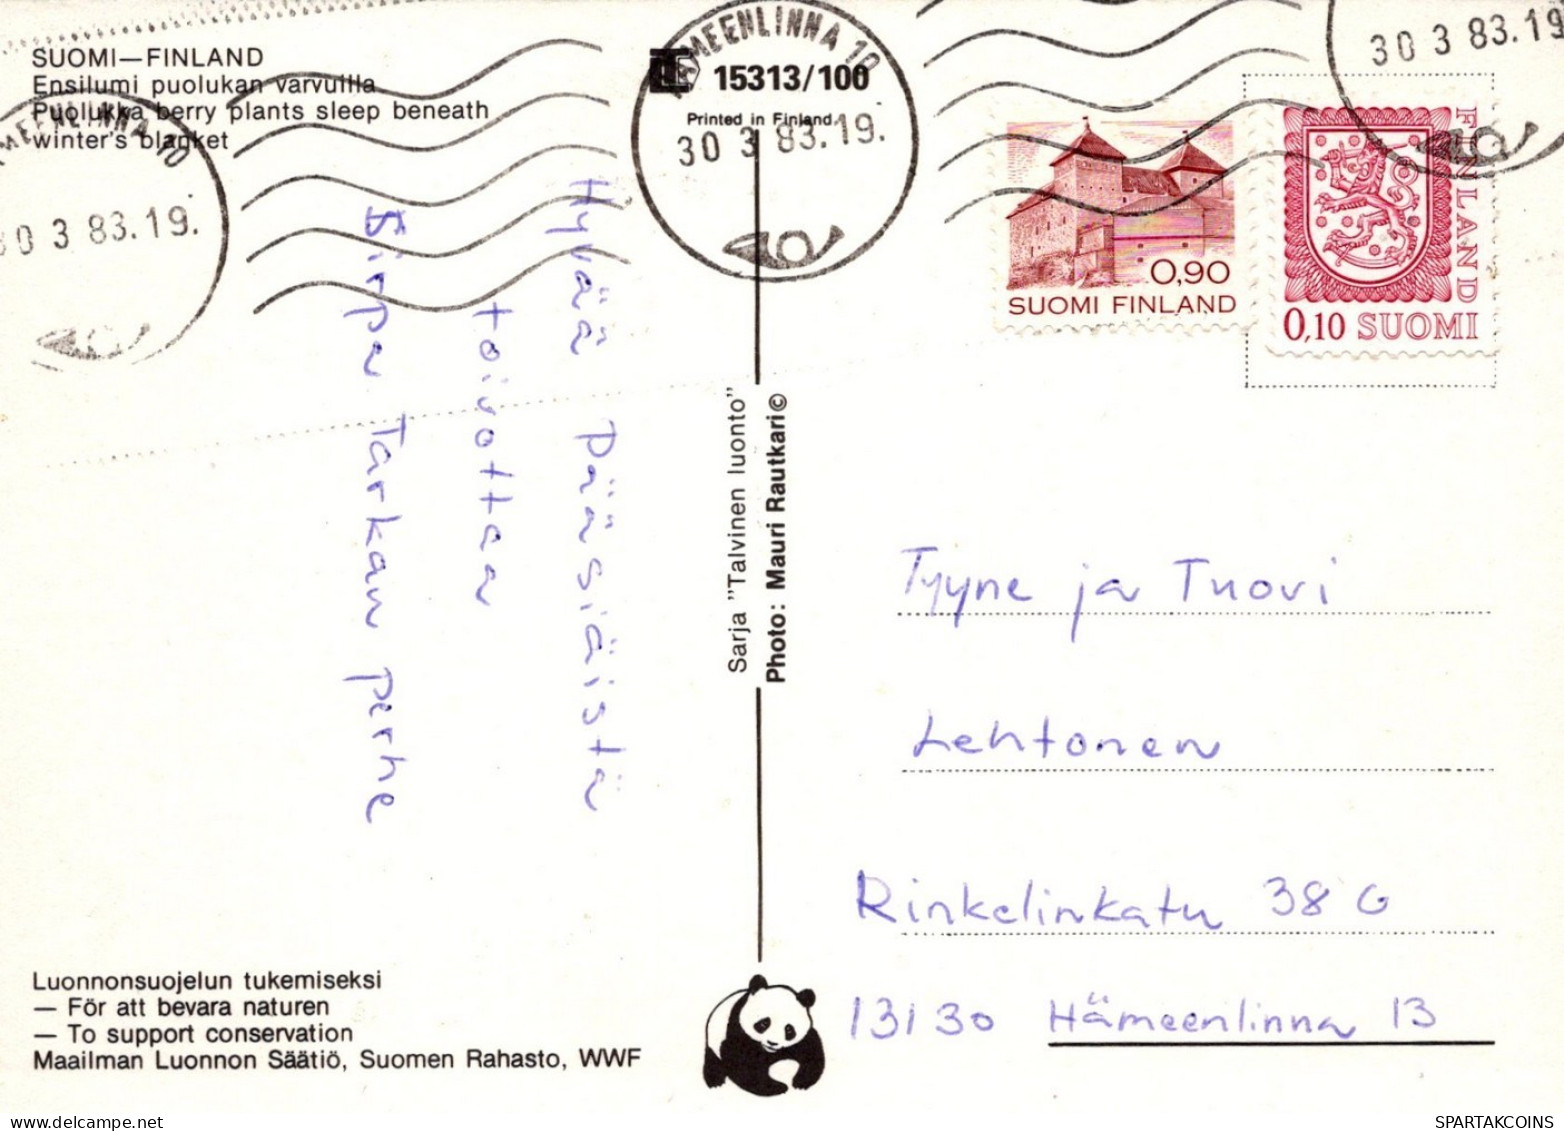 SUOMI—FINLAND
Ensilumi puolukan varvuilla
Puolukka berry plants sleep beneath
winter's blanket
MEENLINNA 10
30 3 83.19.
15313/100
Printed in Finland.
HÄMEENLINNA 10
30 3 83.19.
30 3 83.19
0,90
SUOMI FINLAND
FINLAND
0,10 SUOMI
Hyvää Pääsiäistä
toivottaa
Sirpa Tarkan perhe
Sarja "Talvinen luonto"
Photo: Mauri Rautkari©
Tyyne ja Tuovi
Lehtonen
Rinkelinkatu 38 G
13130 Hämeenlinna 13
Luonnonsuojelun tukemiseksi
— För att bevara naturen
— To support conservation
Maailman Luonnon Säätiö, Suomen Rahasto, WWF
SPARTAKCOINS